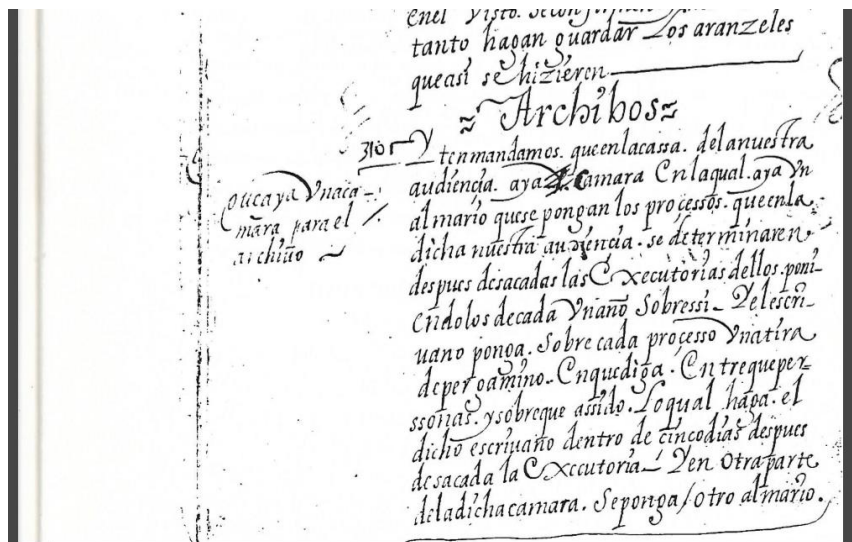 enel Visto. Se conforman
tanto hagan guardar Los aranzeles
queasi se hizieren
~ Archibos ~
310 Y tenmandamos. queenlacassa. delanuestra
audiençia. aya camara Enlaqual. aya Vn
almario quese pongan los proçessos. queenla
dicha nuestra audiençia. se determinaren
despues desacadas las Executorias dellos. poni-
Endolos decada Vnaño Sobressi_ Yelescri-
uano ponga. Sobre cada proçesso Vnatira
depergamino. Enquediga. Entrequeper-
ssonas. ysobreque assido. Loqual haga. el
dicho escriuano dentro de çincodias despues
desacada la Executoria_ Yen Otraparte
deladichacamara. Seponga / otro almario.
queaya Vnaca-
mara para el
archiuo